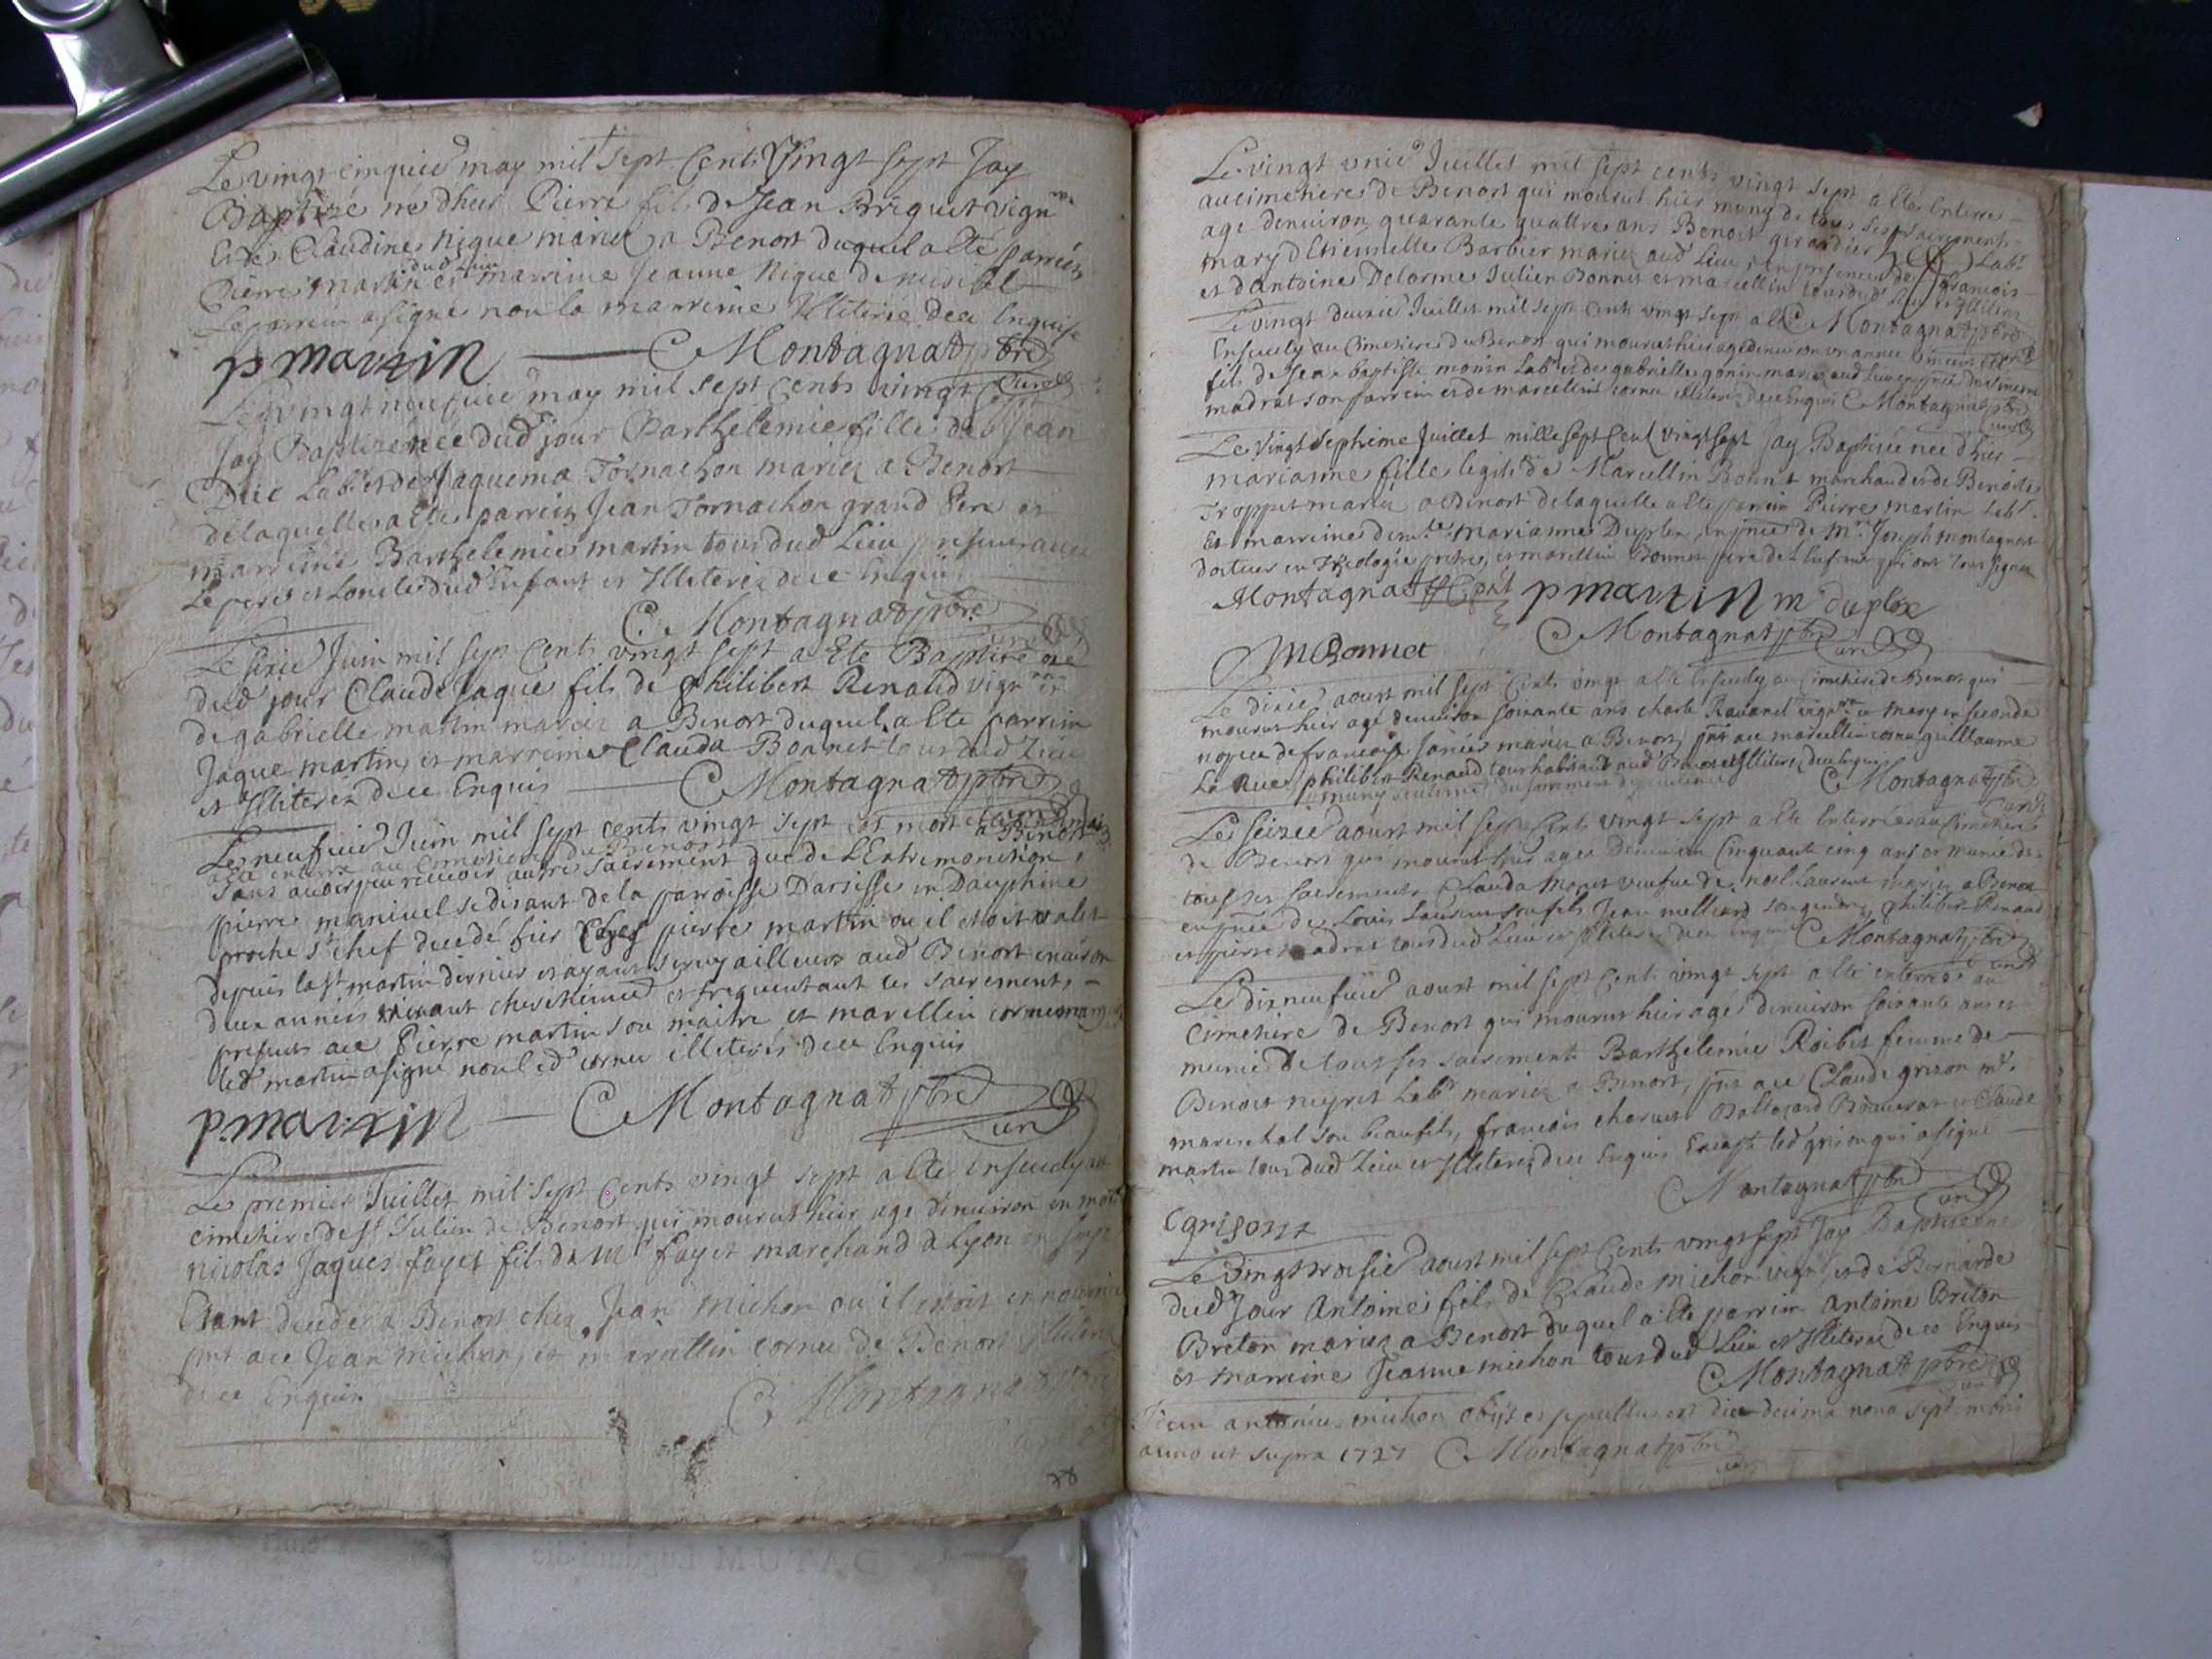 Le vingt cinquie may mil sept Cents Vingt sept Jay
Baptizé né dhier Pierre fils de Jean Briquet vign
et de Claudine Nique mariez a Benost duquel a Eté parrein
Pierre martin et marrine Jeanne Nique de
dud Lieu
Le parrein a signé non la marreine Illiterée de ce Enquise
p martin C Montagnat pbre
Curé
Le vingt neufvie may mil sept cents vingt sept
Jay Baptizé née dud jour Barthelemie fille de Jean
Duc Labr et de Jaquema Tornachon mariez a Benost
de laquelle a Ete parrein Jean Tornachon grand Pere et
marrine Barthelemie martin tous dud Lieu
Le pere et Loncle dud Enfant et Illiterez de ce Enquis
C Montagnat pbre
curé
Le sixie Juin mil sept Cents vingt sept a Ete Baptizé né
dud jour Claude Jaque fils de Philibert Renaud vign et
de gabrielle martin mariez a Benost duquel a Ete parrein
Jaque martin et marreine Clauda Bonnet tous dud Lieu
et Illiterez de ce Enquis C Montagnat pbre
curé
Le neufvie Juin mil sept cents vingt sept est mort
a Eté enterré au Cimetiere de Benost
sans avoir peu recevoir autre sacrement que de L'Extremonction
pierre manivel se disant de la paroisse Darsisse en Dauphiné
proche st chef decedé hier Chez pierre martin ou il etoit valet
depuis la st martin dernier et ayant servy ailleurs aud Benost environ
deux années vivant chrestiennement et frequentant les sacrements
presents ace Pierre martin son maitre et marcellin cornu
led martin a signé non led cornu illiteré de ce Enquis
p.martin C Montagnat pbre
curé
Le premier Juillet mil sept Cents vingt sept a Ete Ensevely au
cimetiere de st Julien de Benost qui mourut hier age d'environ un mois
nicolas Jaques fayet fils de Mr fayet marchand a Lyon
Etant decedé a Benost chez Jean Michon ou il etoit en nourrice
pnt ace Jean michon, et marcellin cornu de Benost Illiterez
de ce Enquis
C Montagnat pbre
78
Le vingt unie Juillet mil sept cents vingt sept a Eté Enterré
au cimetiere de Benost qui mourut hier muny de tous ses sacrements
age denviron quarante quattre ans Benoist girardier Labr
mary d'Etiennette Barbier mariez aud Lieu en presence de francois
et d'Antoine Delorme Julien Bonnet et marcellin
Le vingt deuxie Juillet mil sept Cents vingt sept a Eté C Montagnat pbre
Ensevely au Cimetiere de Benost qui mourut hier age denviron une année
fils de Jean baptiste monin Labr et de gabrielle gonin mariez aud Lieu en pnce de
madrat son parrein et de marcellin cornu illiterez de ce Enquis C Montagnat pbre
curé
Le vingt septieme Juillet mille sept Cent vingt sept Jay Baptisée née dhier
marianne fille legite de Marcellin Bonnet marchand et de Benoite
Troppet mariez a Benost de laquelle a Ete parrein Pierre martin Labr.
et marreine demlle marianne Duplex, en pnce de Mr. Joseph montagnat
docteur en Theologie pretre, et marcellin Bonnet pere de L'enfant qui ont tous signé
Montagnat p martin m duplex
M Bonnet C Montagnat pbre
curé
Le dixie aoust mil sept Cents vingt a Ete Ensevely au Cimetiere de Benost qui
mourut hier agé denviron soixante ans charle Ravanel vign mary en seconde
nopces de francoise mariez a Benost, pnt ace marcellin cornu guillaume
La Rue philibert Renaud tous habitants aud Benost et Illiterez de ce Enquis
muny seulement du sacrement de penitence C Montagnat pbre
curé
Le seizie aoust mil sept Cents vingt sept a Ete Enterrée au Cimetiere
de Benost qui mourut hier agee denviron Cinquante cinq ans et munie de
tous ses sacrements Clauda Moret veufve de noel Laurent mariez a Benost
en pnce de Louis Laurent son fils Jean melliard son gendre, philibert Renaud
et pierre madrat tous dud Lieu et Illiterez de ce Enquis C Montagnat pbre
curé
Le dix neufvie aoust mil sept Cents vingt sept a Eté enterrée au
cimetiere de Benost qui mourut hier agé denviron soixante ans et
munie de tous ses sacrements Barthelemie Roibet femme de
Benoist neyret Labr mariez a Benost, pnt ace Claude grison md
mareschal son beaufils, francois charvet Baltazard Bonnerat et Claude
martin tous dud Lieu et Illiterez de ce Enquis Excepté led grison qui a signé
C Montagnat pbre
curé
C grison
Le Vingt troisie aoust mil sept Cents vingt sept Jay Baptisé né
dud Jour Antoine fils de Claude michon vign et de Bernarde
Breton mariez a Benost duquel a Ete parrein Antoine Breton
et marreine Jeanne michon tous dud Lieu et Illiterez de ce Enquis
C Montagnat pbre
curé
antonius michon obiit et sepultus est die decima nona septembris
anno ut supra 1727 C Montagnat pbre
curé